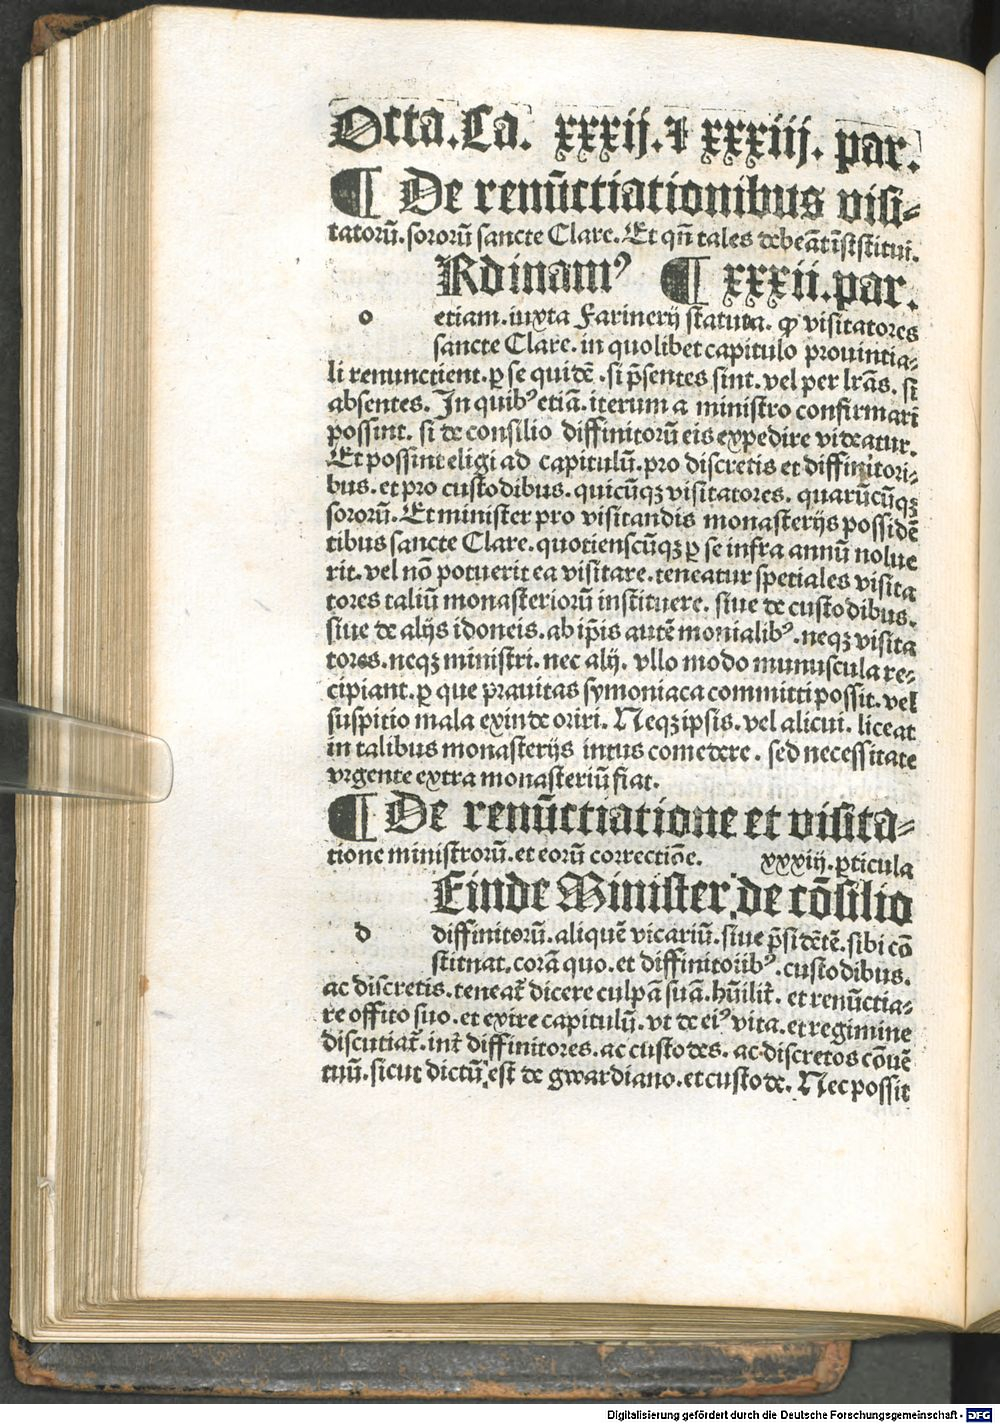 Octa.Ca. xxxij.⁊ xxxiij. par.
¶ De renūctiationibus visi⸗
tatorū.sororū sancte Clare.Et qñ tales debeāt īstitui.
Rdinamꝰ ¶ xxxii.par.
o etiam.iuxta Farinerij statuta. ꝙ visitatores
sancte Clare.in quolibet capitulo prouintia⸗
li renunctient.ꝑ se quidē.si p̄sentes sint.vel per lr̄as. si
absentes. In quibꝰ etiā.iterum a ministro confirmari
possint. si de consilio diffinitorū eis expedire videatur.
Et possint eligi ad capitulū.pro discretis et diffinitori⸗
bus.et pro custodibus.quicūqꝫ visitatores. quarūcūqꝫ
sororū.Et minister pro visitandis monasterijs possidē
tibus sancte Clare.quotienscūqꝫ ꝑ se infra annū nolue
rit.vel nō potuerit ea visitare.teneatur spetiales visita
tores taliū monasteriorū instituere. siue de custodibus.
siue de alijs idoneis.ab ip̄is autē monialibꝰ.neqꝫ visita
tores.neqꝫ ministri.nec alij. vllo modo munuscula re⸗
cipiant.ꝑ que prauitas symoniaca committi possit.vel
suspitio mala exinde oriri. Neqꝫ ipsis.vel alicui. liceat
in talibus monasterijs intus comedere. sed necessitate
vrgente extra monasteriū fiat.
¶ De renūctiatione et visita⸗
tione ministrorū.et eorū correctiōe. xxxiij.ꝑticula
Einde Minister.de cōsilio
d diffinitorū.aliquē vicariū.siue p̄sidētē.sibi cō
stitnat.corā quo.et diffinitoiibꝰ.custodibus.
ac discretis.teneat̄ dicere culpā suā.hūilit̄. et renūctia⸗
re offito suo.et exire capitulū.vt de eiꝰ vita.et regimine
discutiat̄.int̄ diffinitores.ac custodes. ac discretos cōuē
tuū.sicut dictū est de gwardiano.et custode. Nec possit
Digitalisierung gefördert durch die Deutsche Forschungsgemeinschaft - DFG